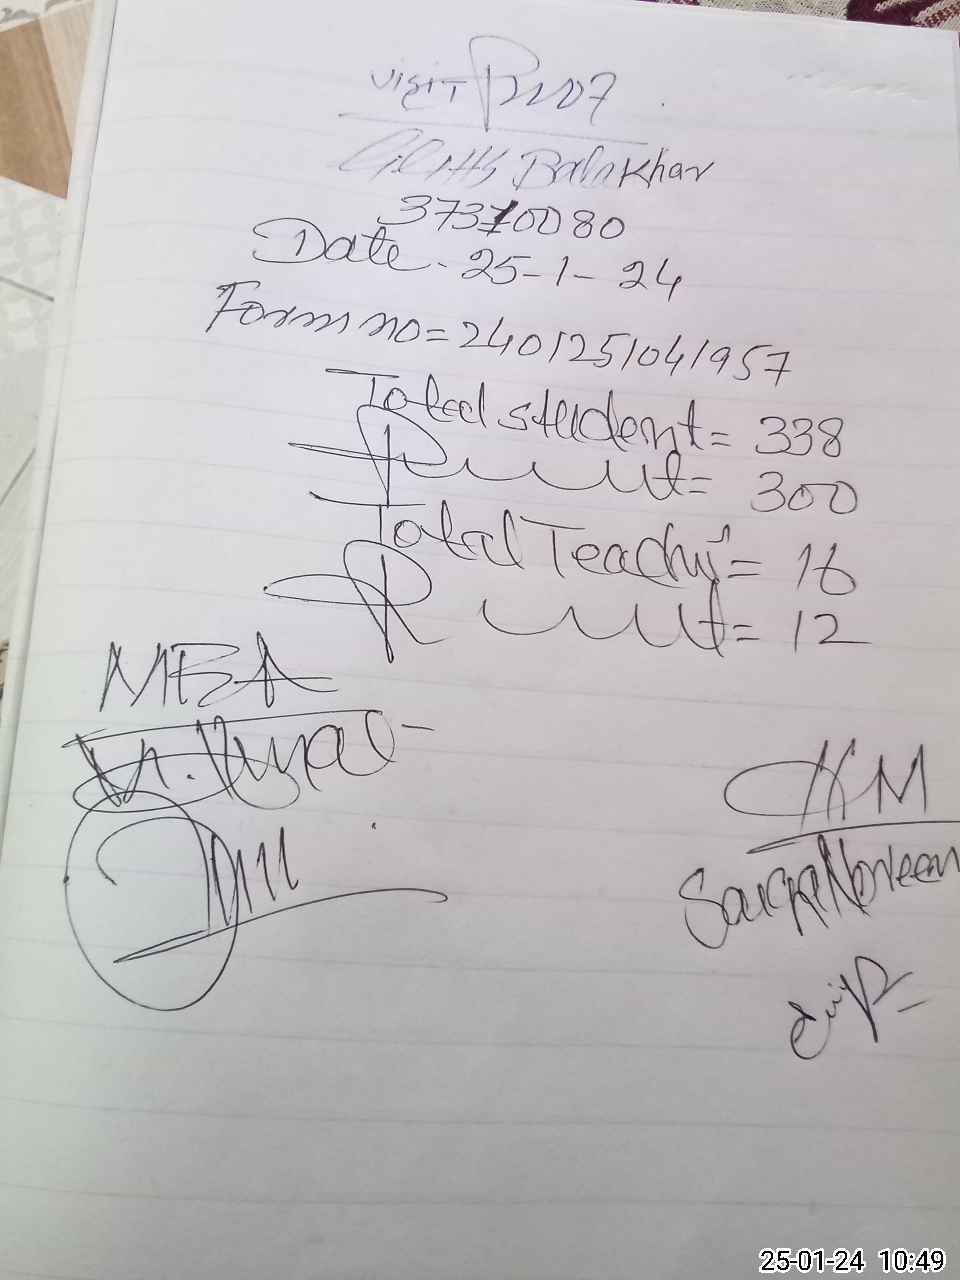 visit Proof
GGHS Balakhar
37370080
Date - 25-1-24
Form no = 2401251041957
Total student = 338
Present = 300
Total Teacher = 16
Present = 12
MEA
HM
Noreen
25-01-24 10:49